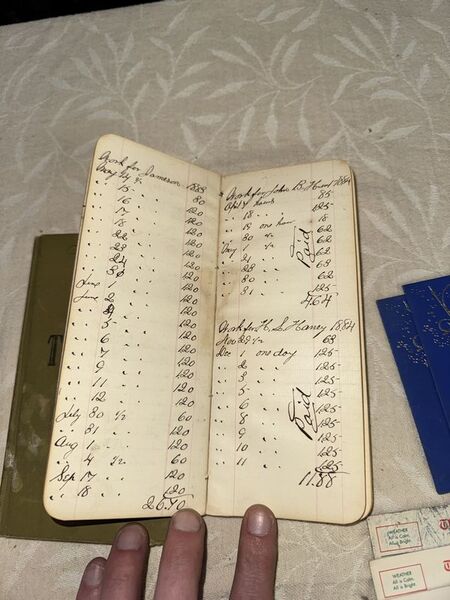 Work for Jameson 1883
May 14 ½ 80
" 15 " 120
" 16 " 120
" 17 " 120
" 18 " 120
" 22 " 120
" 23 " 120
" 24 " 120
" 30 " 120
June 1 " 120
June 2 " 120
" 5 " 120
" 6 " 120
" 7 " 120
" 9 " 120
" 11 " 120
" 12 " 120
July 30 ½ 60
" 31 " 120
Aug 1 " 120
" 4 ½ 60
Sep 17 " 120
" 18 " 120
26.40
Work for John B 1884
85
" 18 " 125
" 19 one hour 18
" 30 ½ 62
May 1 ½ 62
" 21 " 62
" 28 " 63
" 30 "
" 31 " 125
4.64
Paid
Work for H. S. Haney 1884
Nov 29 ½ 63
Dec 1 one day 125
" 2 " 125
" 3 " 125
" 5 " 125
" 6 " 125
" 8 " 125
" 9 " 125
" 10 " 125
" 11 " 125
11.88
Paid
T
WEATHER
All is Calm
All is Bright
WEATHER
All is Calm
All is Bright